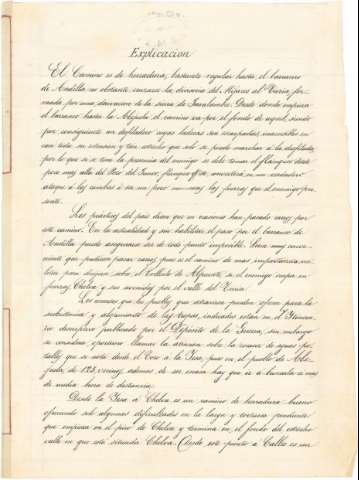 Explicacion
El Camino es de herradura, bastante regular hasta el barranco
de Andilla no obstante cruzarse la divisoria del Mijares al Turia, for-
mada por una derivacion de la sierra de Javalambre. Desde donde empieza
el barranco hasta la Alcublas el camino va por el fondo de aquel, siendo
por consiguiente un desfiladero cuyas laderas son escarpadas, inaccesibles en
casi toda su estension y tan estrecho que solo se puede marchar a la desfilada,
por lo que si se teme la presencia del enemigo se debe tomar el flanqueo desde
muy allá del
ataque á las cumbres ó no
sente.
Los prácticos del pais dicen que en ocasiones han pasado carros por
este camino. En la actualidad y sin habilitar el paso por el barranco de
Andilla puede asegurarse ser de todo punto imposible. Seria muy conve-
niente que pudieran pasar carros, pues es el camino de mas importancia mi-
litar para dirigirse sobre el Collado de Alpuente, si el enemigo ocupa en
fuerza, Chelva y sus avenidas por el valle del Turia.
Los recursos que los pueblos que atraviesa pueden ofrecer para la
subsistencia y alojamiento de las tropas, indicados están en el Itinera-
rio descriptivo publicado por el Depósito de la Guerra, sin embargo
se considera oportuno llamar la atencion sobre la escasez de aguas po-
tables que se nota desde el Toro a la Yesa, pues en el pueblo de
de 125 vecinos, ademas de ser escasa hay que ir a buscarla a mas
de media hora de distancia.
Desde la Yesa á Chelva es un camino de herradura bueno
ofreciendo solo algunas dificultades en la larga y tortuosa pendiente
que empieza en el pico de Chelva y termina en el fondo del estrecho
valle en que está situada Chelva. Desde este punto a Calles es un